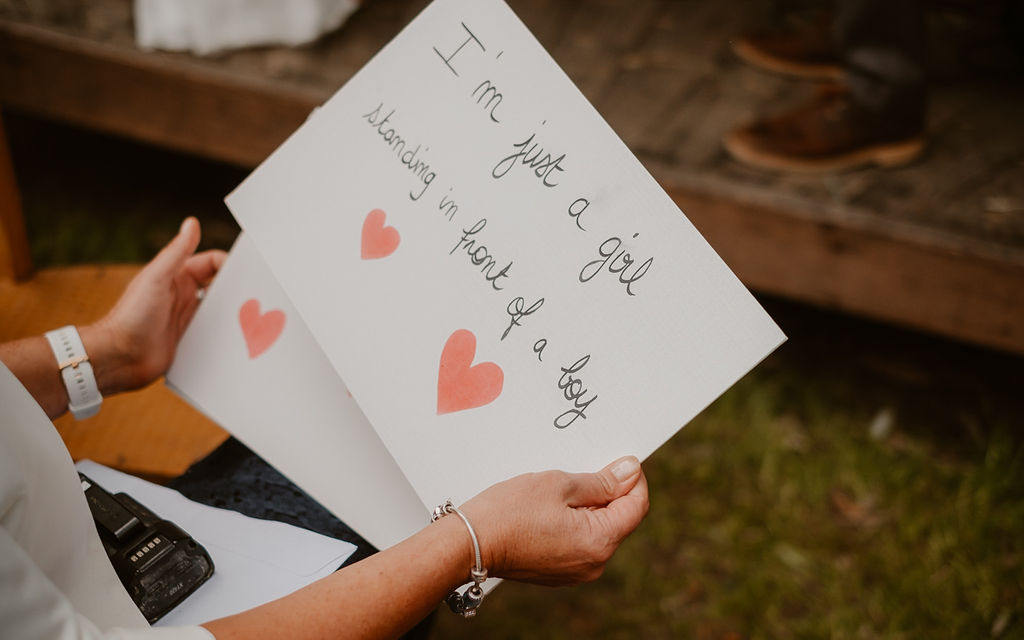 I'm just a girl
standing in front of a boy